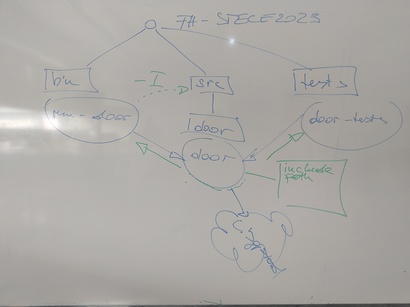 FH - STECE2023
bin
- I
src
tests
run-door
door
door-tests
door
include
path